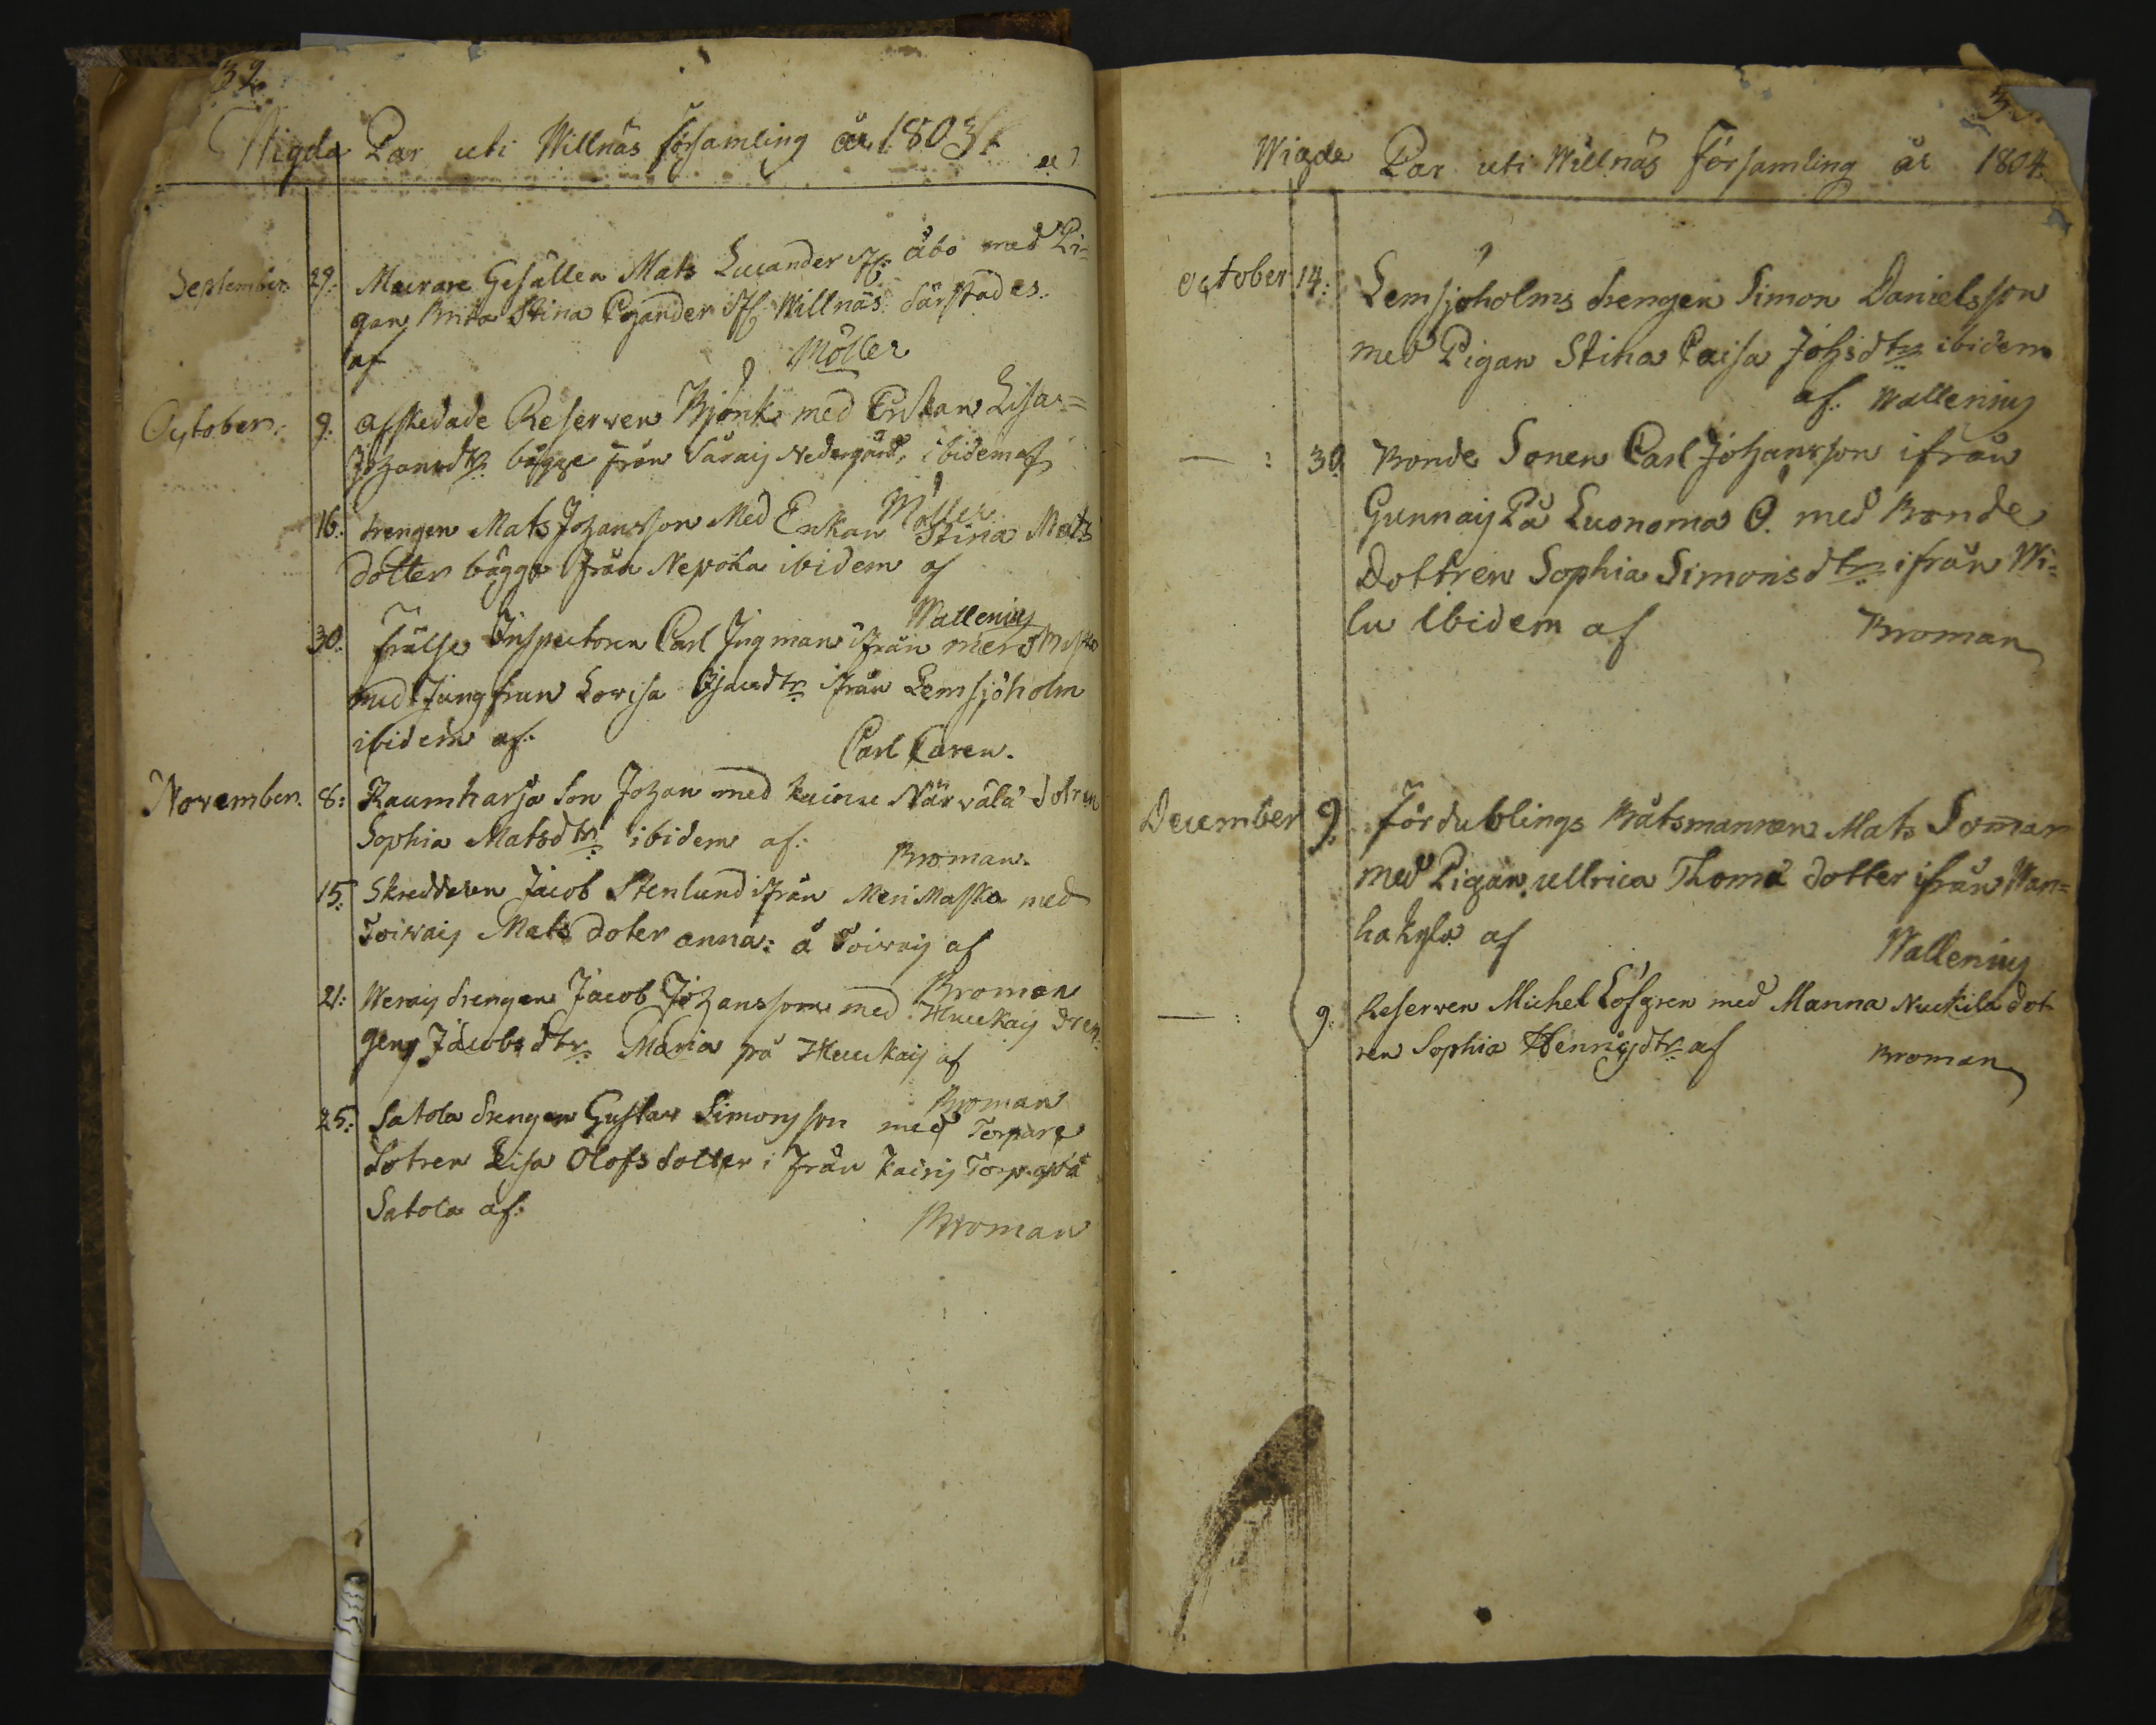 39.
Wigda Par uti Willnäs församling år 1803
September. 29. Murare Gesällen Mats Lucander ifr. Åbo med Pi-
gan Brita Stina Cajander ifr. Willnäs därstädes.
af Möller
October. 9. Afskedade Reserven Björk med Enkan Lisa
Johansdtr. bägge från Nedergård, ibidem af
Möller
16. drengen Mats Johansson Med Enkan Stina Mats
dotter bägge från ibidem af
Wallenius
30. Frälse Inspectoren Carl Ingman ifrån
med Jungfrun Lovisa ifrån Lemsjöholm
ibidem af. Carl Caren.
November. 8: Raumharja Son Johan med Närvälä dotren
Sophia Matsdtr. ibidem af. Broman.
15. Skreddaren Jacob Stenlund ifrån Meri Maska med
Toivais Mats doter anna: å Toivais af
Broman
21: Werais drengen Jacob Johansson med Huukais dren-
gens Jacobs dtr. Maria på Huukais af
Broman
25: Satola drengen Gustav Simonsson med Torpare
dotren Lisa Olofs dotter i från Kairis Torp på
Satola af: Broman
Wigde Par uti Willnäs Församling år 1804.
October 14: Lemsjöholms drengen Simon Danielsson
med Pigan Stina Caisa Johsdtr ibidem
af. Wallenius
— : 30 Bonde Sonen Carl Johansson ifrån
Gunnais På Luonoma Ö. med Bonde
Dottren Sophia Simonsdtr. ifrån Wi-
lu Ibidem af Broman
December 9. Fördublings Båtsmannen Mats Somar
med Pigan ullrica Thoma dotter ifrån Wan-
hakylä af Wallenius
— : 9. Reserven Michel Löfgren med Manna Nuckila dot-
ren Sophia Henrigdtr. af Broman